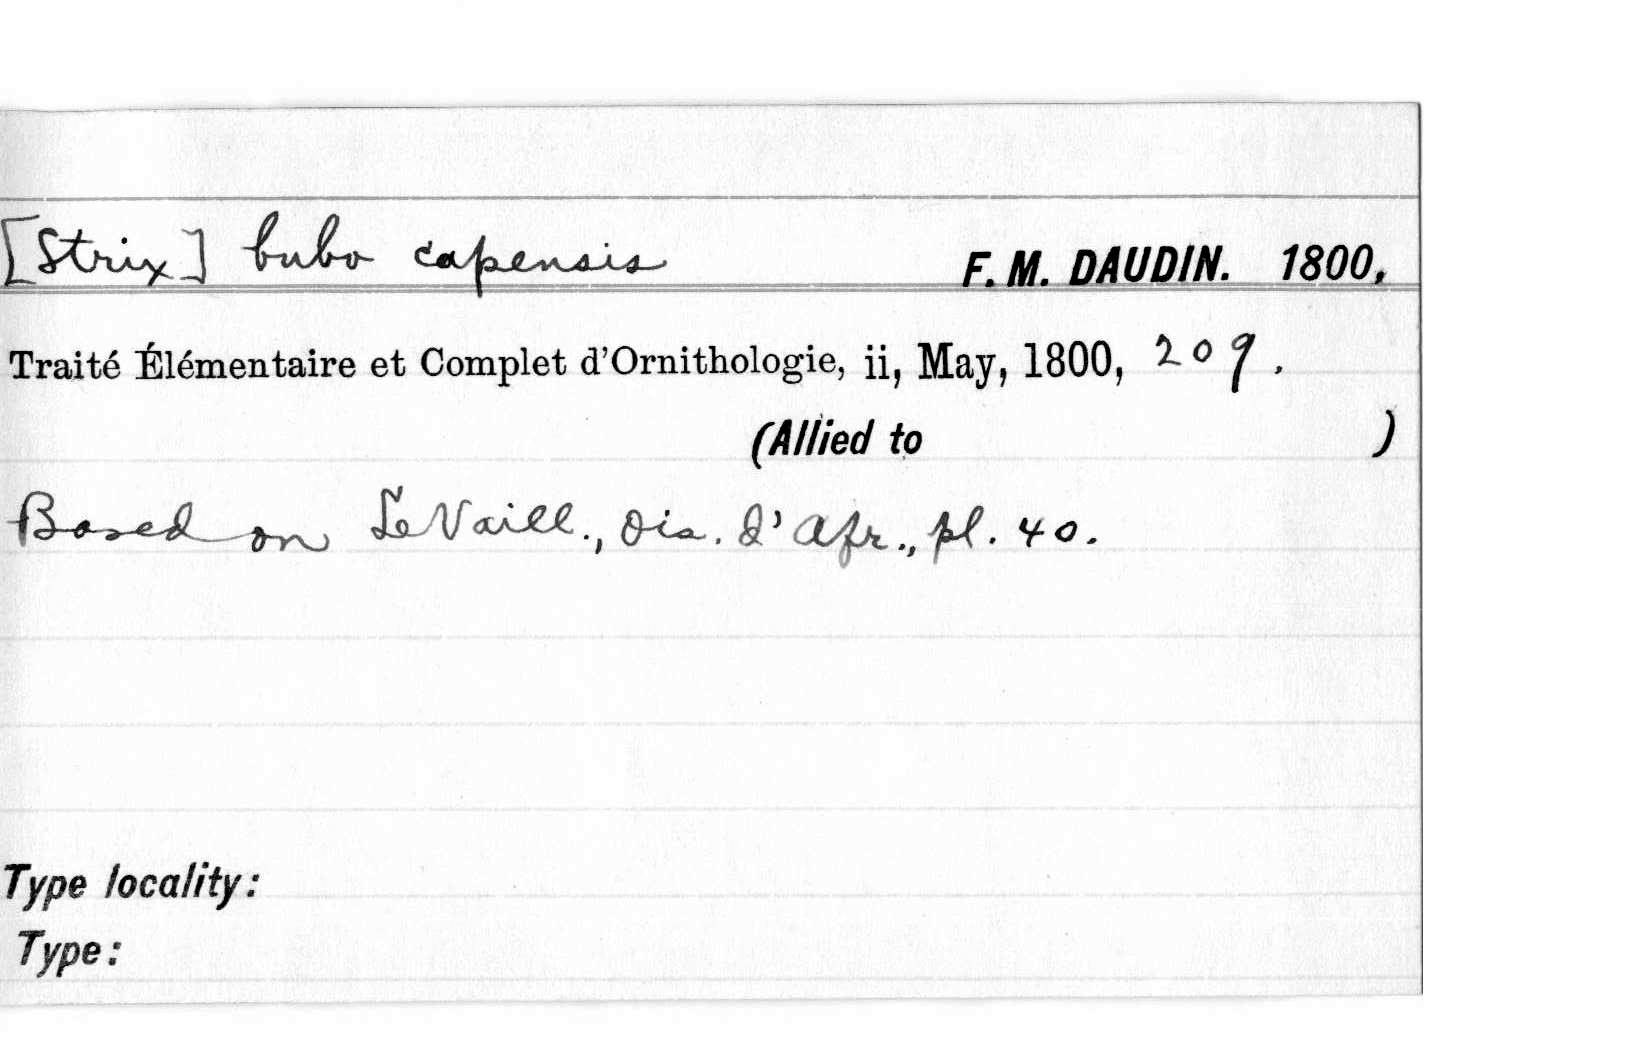 [Strix] bubo capensis F. M. DAUDIN. 1800,
Traité Élémentaire et Complet d'Ornithologie, ii, May, 1800, 209.
(Allied to )
Based on LeVaill., Ois. d'Afr., pl. 40.
Type locality:
Type: